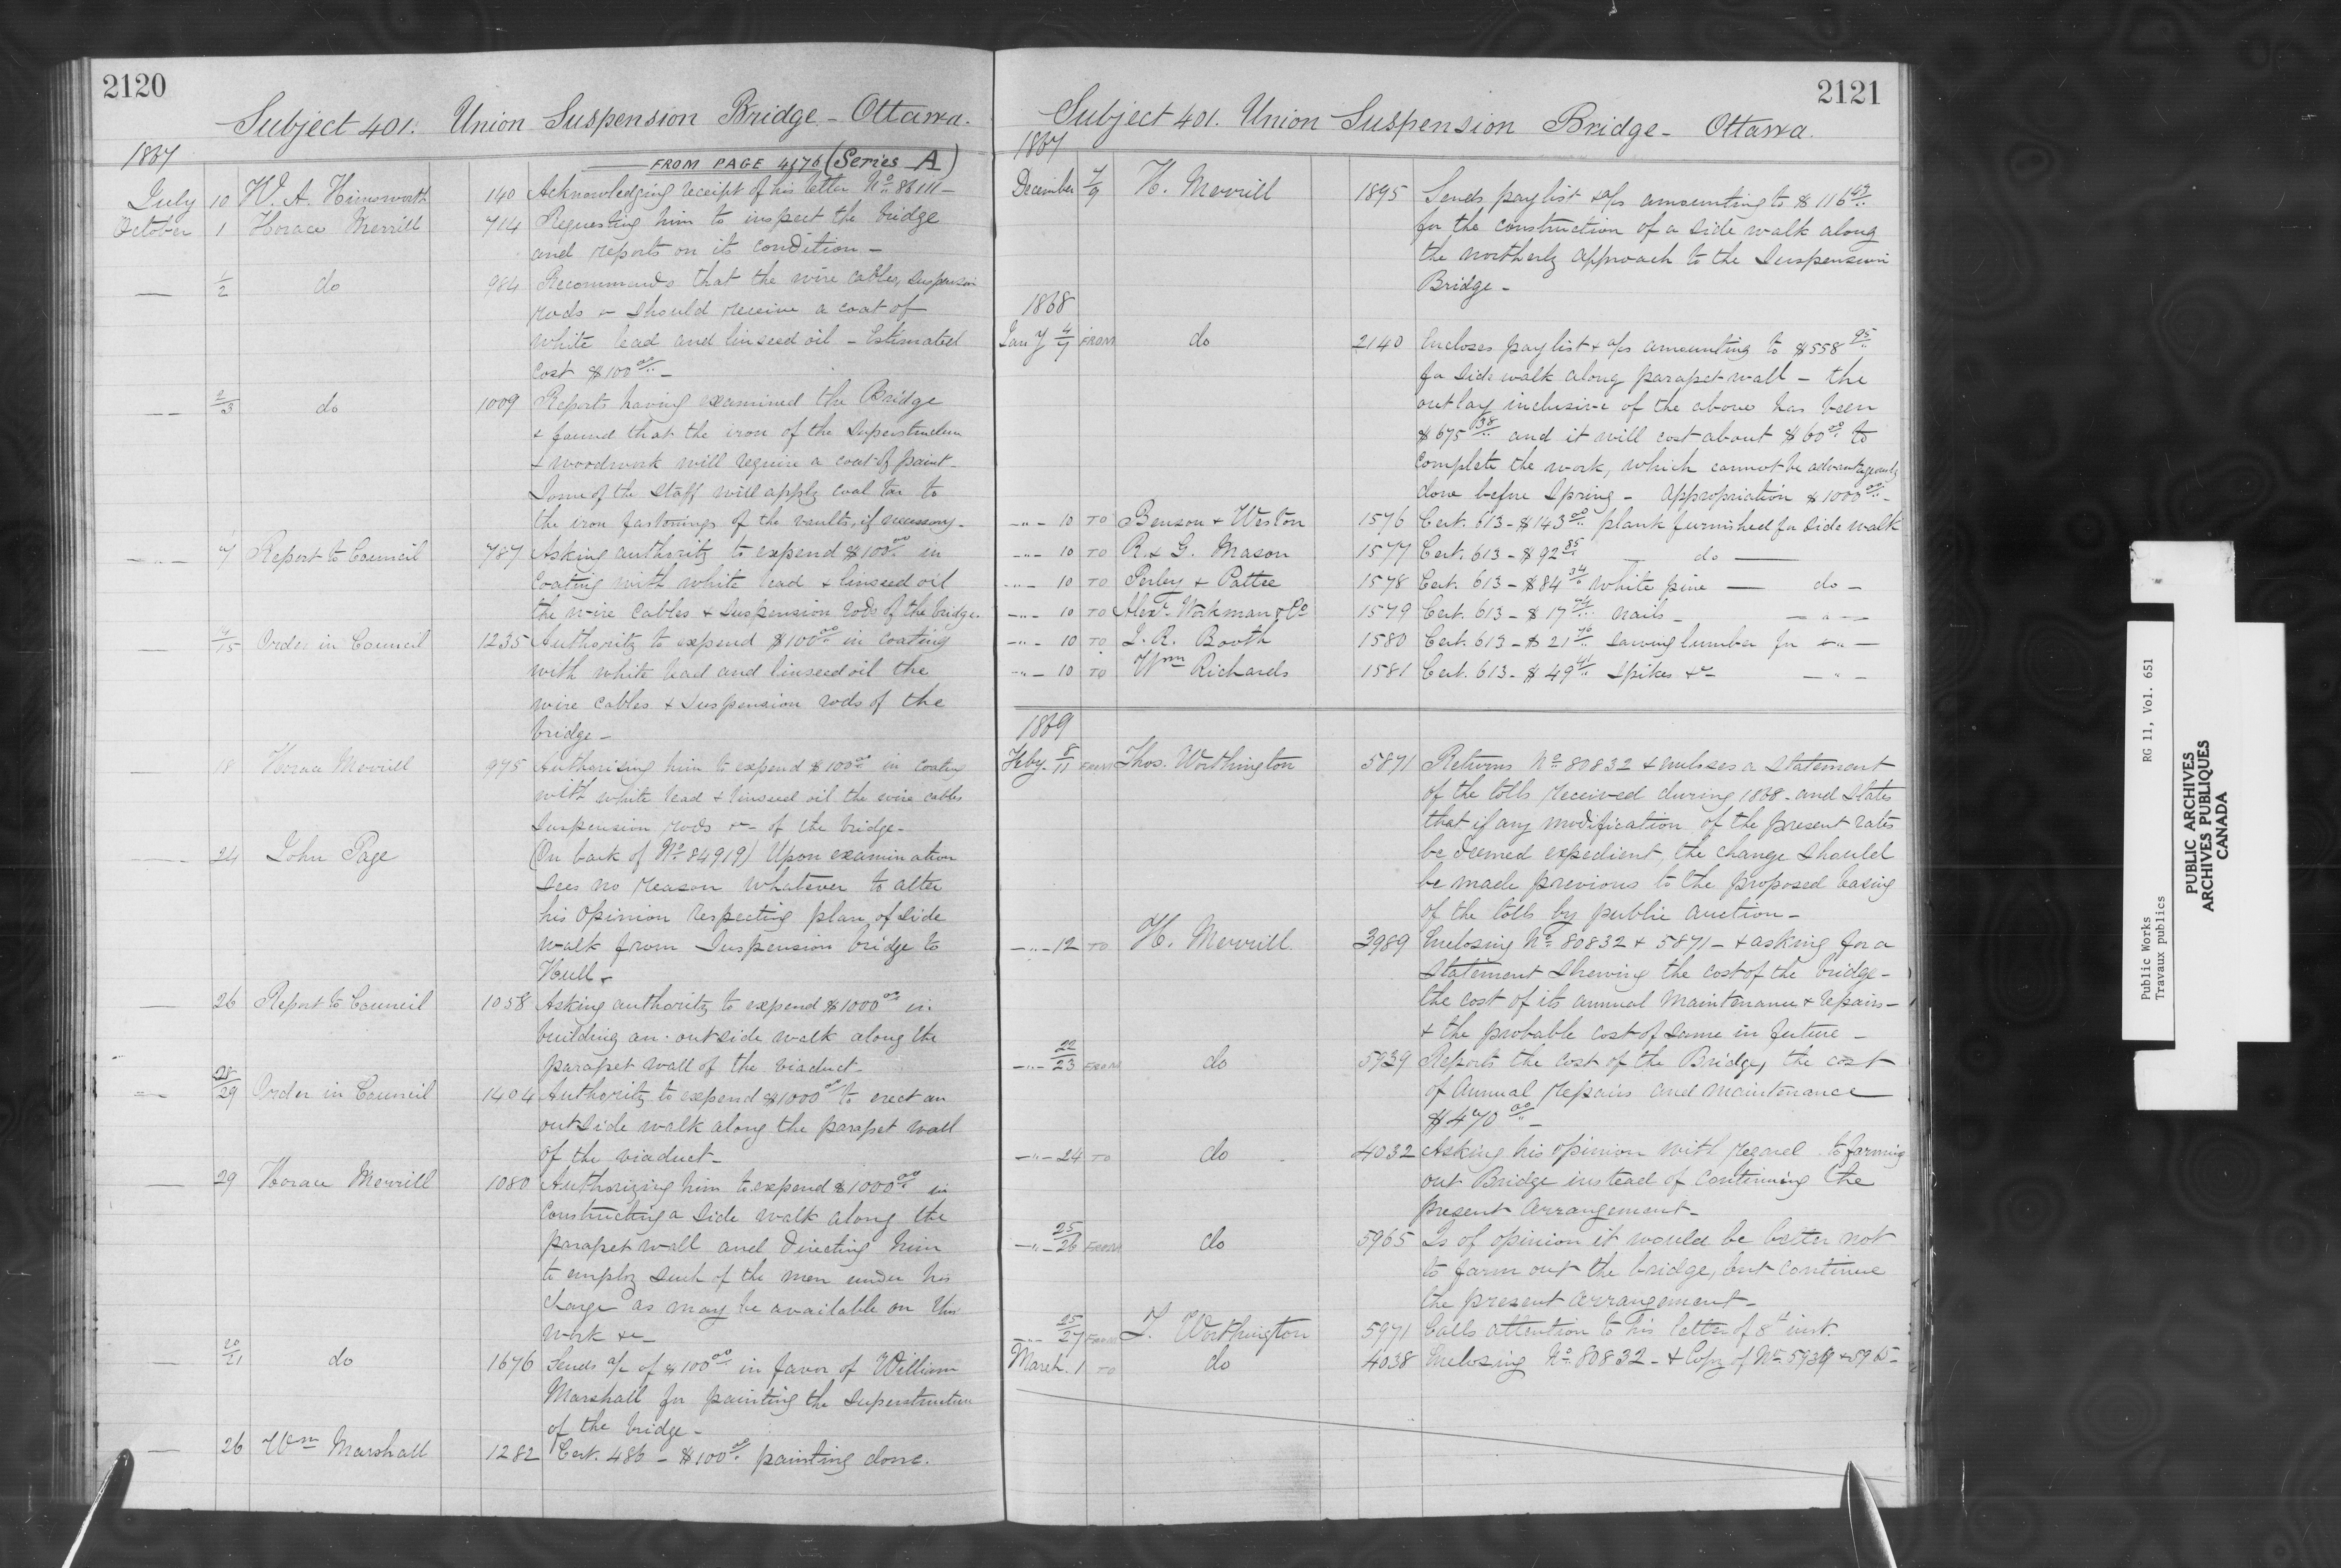 2120
Subject 401. Union Suspension Bridge - Ottawa.
1867
FROM PAGE 4176 (Series A)
July 10 W. A. Himsworth 140 Acknowledging receipt of his letter No. 86111 -
October 1 Horace Merrill 714 Requesting him to inspect the bridge
and reports on its condition -
— 1/2 do 984 Recommends that the wire cables, suspension
rods & should receive a coat of
white lead and linseed oil - Estimated
cost $100 00/.. -
— 2/3 do 1009 Reports having examined the Bridge
& found that the iron of the superstructure
& woodwork will require a coat of paint -
Some of the staff will apply coal tar to
the iron fastenings of the vaults, if necessary -
— 7 Report to Council 787 Asking authority to expend $100 00/.. in
coating with white lead & linseed oil
the wire cables & suspension rods of the bridge.
— /15 Order in Council 1235 Authority to expend $100 00/.. in coating
with white lead and linseed oil the
wire cables & suspension rods of the
bridge -
— 18 Horace Merrill 975 Authorising him to expend $100 00/.. in coating
with white lead & linseed oil the wire cables
suspension rods &c - of the bridge -
— 24 John Page (On back of No. 84919) Upon examination
sees no reason whatever to alter
his opinion respecting plan of side
walk from Suspension bridge to
Hull -
— 26 Report to Council 1058 Asking authority to expend $1000 00/.. in
building an outside walk along the
parapet wall of the viaduct -
— 28/29 Order in Council 1404 Authority to expend $1000 00/.. to erect an
outside walk along the parapet wall
of the viaduct -
— 29 Horace Merrill 1080 Authorizing him to expend $1000 00/.. in
constructing a side walk along the
parapet wall and directing him
to employ such of the men under his
charge as may be available on this
work &c -
— 20/21 do 1676 Sends a/c of $100 00/.. in favor of William
Marshall for painting the superstructure
of the bridge -
— 26 Wm Marshall 1282 Cert. 486 - $100 00/.. painting done.
2121
Subject 401. Union Suspension Bridge - Ottawa.
1867
December 7/9 H. Merrill 1895 Sends paylist & a/cs amounting to $116 43/..
for the construction of a side walk along
the northerly approach to the Suspension
Bridge -
1868
Jany 4/7 FROM do 2140 Encloses paylist & a/cs amounting to $558 95/..
for side walk along parapet wall - the
outlay inclusive of the above has been
$675 38/.. and it will cost about $60 00/.. to
complete the work, which cannot be advantageously
done before Spring - Appropriation $1000 00/.. -
—"— 10 TO Benson & Weston 1576 Cert. 613 - $143 00/.. plank furnished for side walk
—"— 10 TO R. & G. Mason 1577 Cert. 613 - $92 85/.. — do —
—"— 10 TO Perley & Pattee 1578 Cert. 613 - $84 34/.. white pine — do -
—"— 10 TO Alexr. Workman & Co 1579 Cert. 613 - $17 74/.. nails - —"—
—"— 10 TO J. R. Booth 1580 Cert. 613 - $21 76/.. sawing lumber for —"—
—"— 10 TO Wm Richards 1581 Cert. 613 - $49 41/.. spikes &c - —"—
1869
Feby. 8/11 FROM Thos. Worthington 5871 Returns No. 80832 & encloses a statement
of the tolls received during 1868 - and states
that if any modification of the present rates
be deemed expedient, the change should
be made previous to the proposed leasing
of the tolls by public auction -
—"— 12 TO H. Merrill 3989 Enclosing No. 80832 & 5871 - & asking for a
statement shewing the cost of the bridge -
the cost of its annual maintenance & repairs -
& the probable cost of same in future -
—"— 22/23 FROM do 5939 Reports the cost of the Bridge, the cost
of annual repairs and maintenance
$470 00/.. -
—"— 24 TO do 4032 Asking his opinion with regard to farming
out Bridge instead of continuing the
present arrangement -
—"— 25/26 FROM do 5965 Is of opinion it would be better not
to farm out the bridge, but continue
the present arrangement -
—"— 25/27 FROM T. Worthington 5971 Calls attention to his letter of 8th inst.
March. 1 TO do 4038 Enclosing No. 80832 - & Copy of No. 5939 & 5965 -
Public Works RG 11, Vol. 651
Travaux publics
PUBLIC ARCHIVES
ARCHIVES PUBLIQUES
CANADA